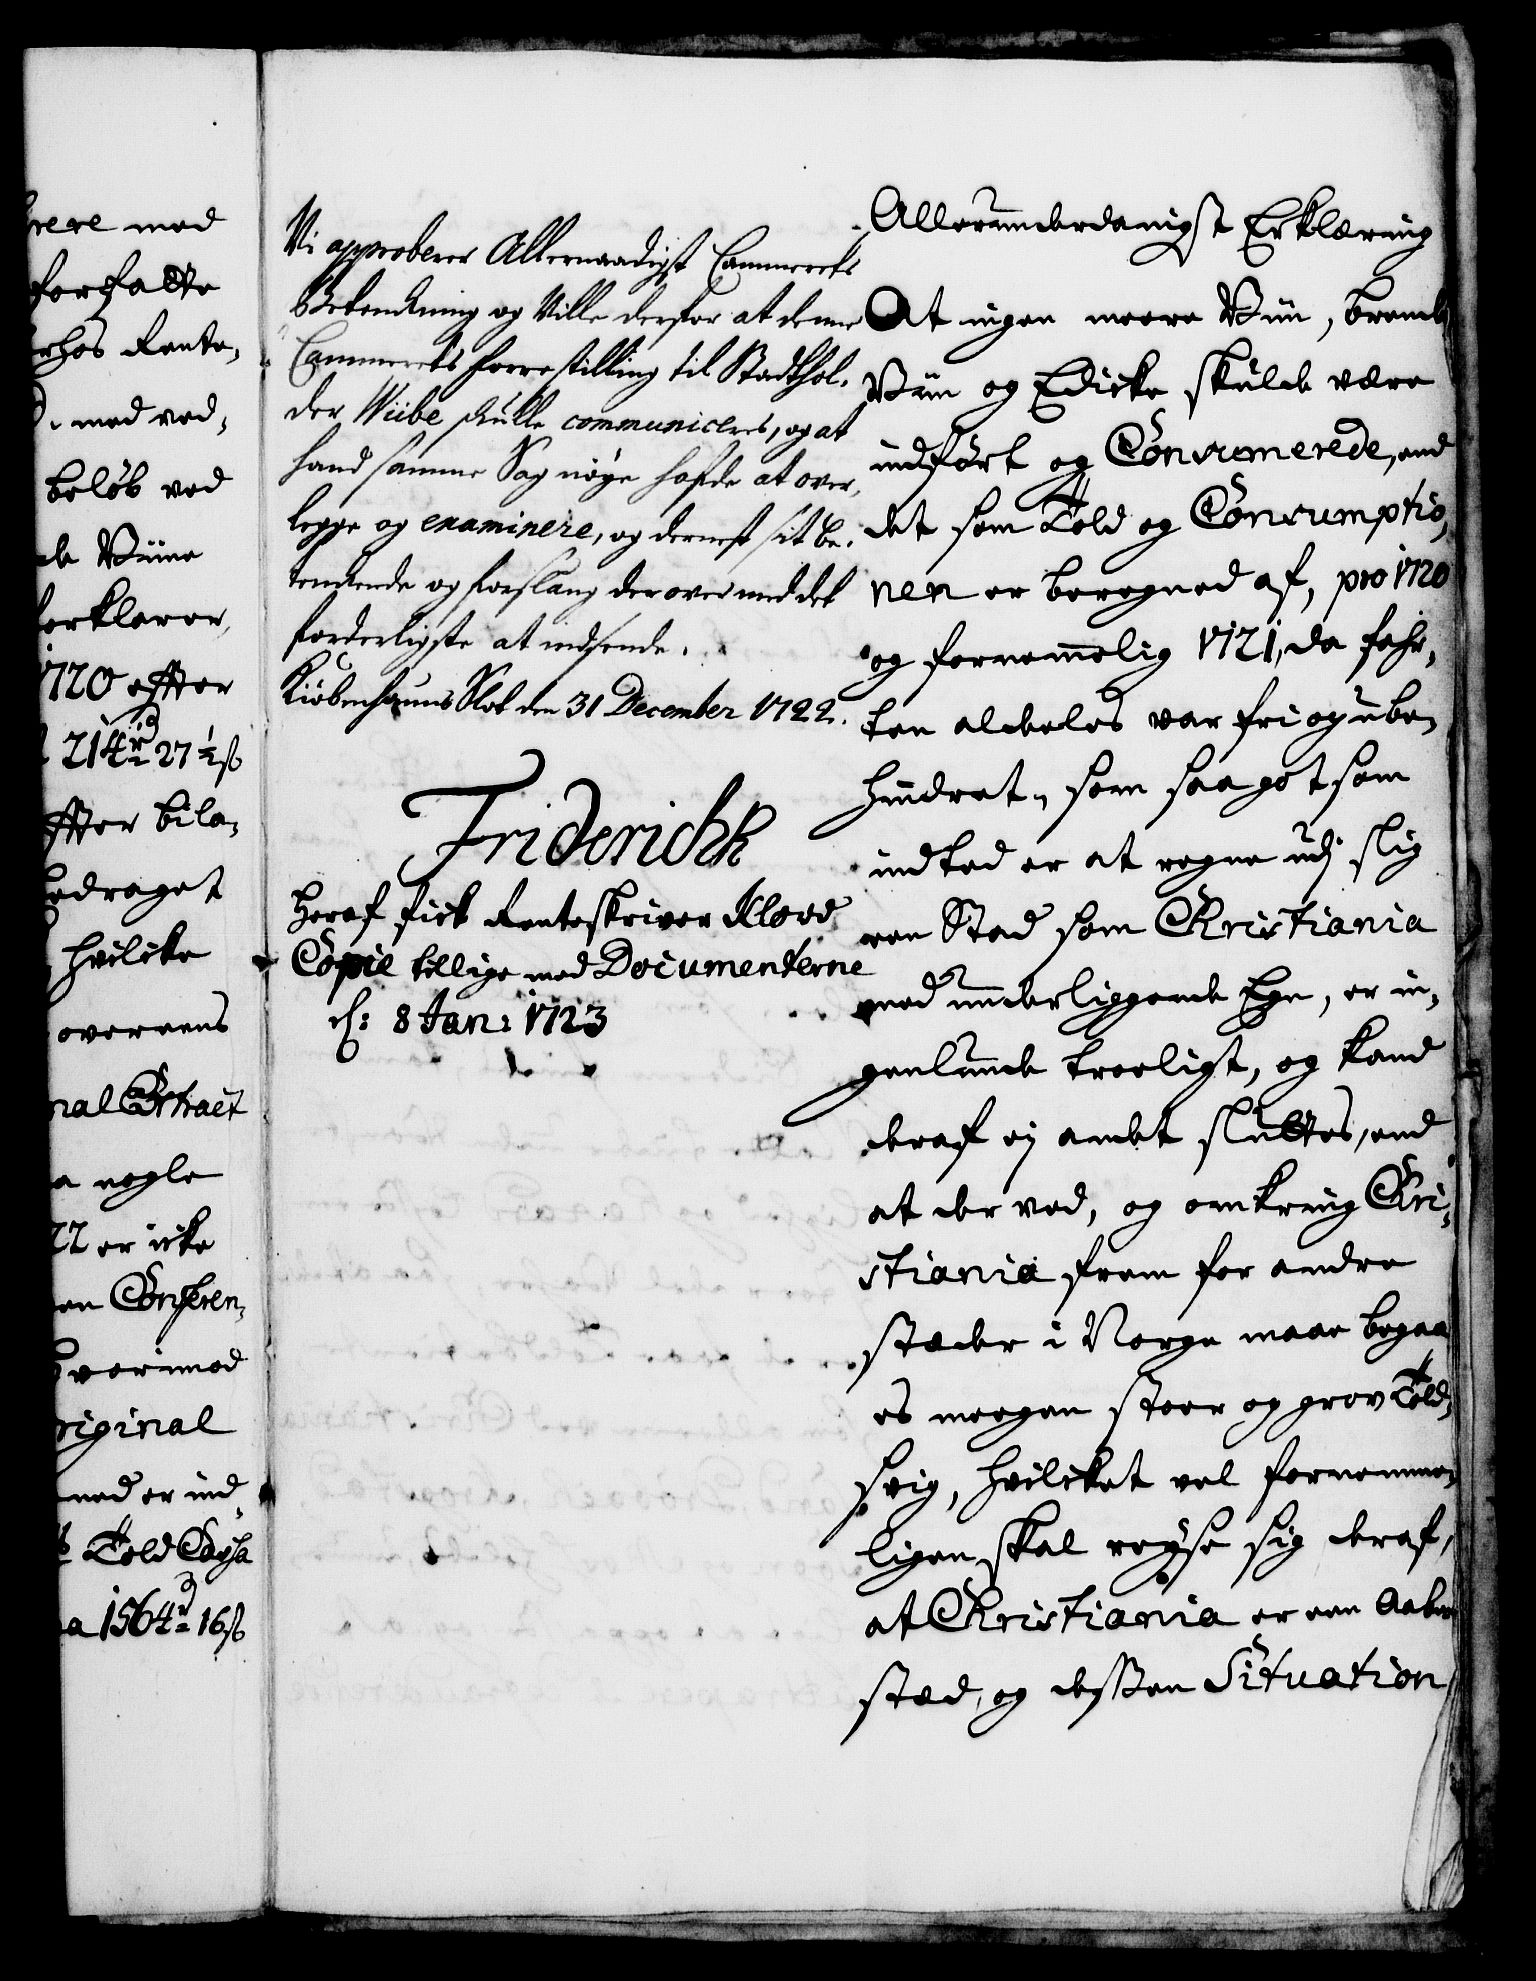 rere med
forfatte
rhos Rente,
d. med ved,
beløb ved
de Viine
erklærer,
1720 efter
214 rd 27 1/2 ß
fter bila,
bedraget
hvilike
overeens
nal Extract
a nogle
22 er icke
en Conferen,
hvorimod
riginal
med er ind,
Told Cassa
a 1564 rd 16 ß
Vi approberer Allernaadigst Cammerets
Betenckning og Ville derfor at denne
Cammerets forrestilling til Stadthol,
der Wiibe skulle communiceres, og at
hand samme Sag nøye hafde at over,
legge og examinere, og dernest sit be,
tenckende og forslaug derover med det
forderligste at indsende.
Kiøbenhauns Slot den 31 December 1722.
Friderich R
Heraf fick Renteskriver Kloed
Copie tillige med Documenterne
d: 8 Jan: 1723
Allerunderdanigst Erklæring
At ingen meere Viin, brende
Viin og Edicke skulde være
indført og Consumerede, end
det som Told og Consumptio,
nen er beregned af, pro 1720
og fornemmelig 1721, da fahr,
ten aldeles var fri og ube,
hindret, som saa got som
indted er at regne udj slig
een Stad som Christiania
med underliggende Egn, er in,
genlunde troeligt, og kand
deraf ej andet sluttes, end
at der ved, og omkring Chri,
stiania frem for andre
stæder i Norge maae begaa
es meegen stoer og grov Told,
svig, hvilcket vel fornemme,
ligen skal reyse sig deraf,
at Christiania er een Aaben
stæd, og dessen Situation